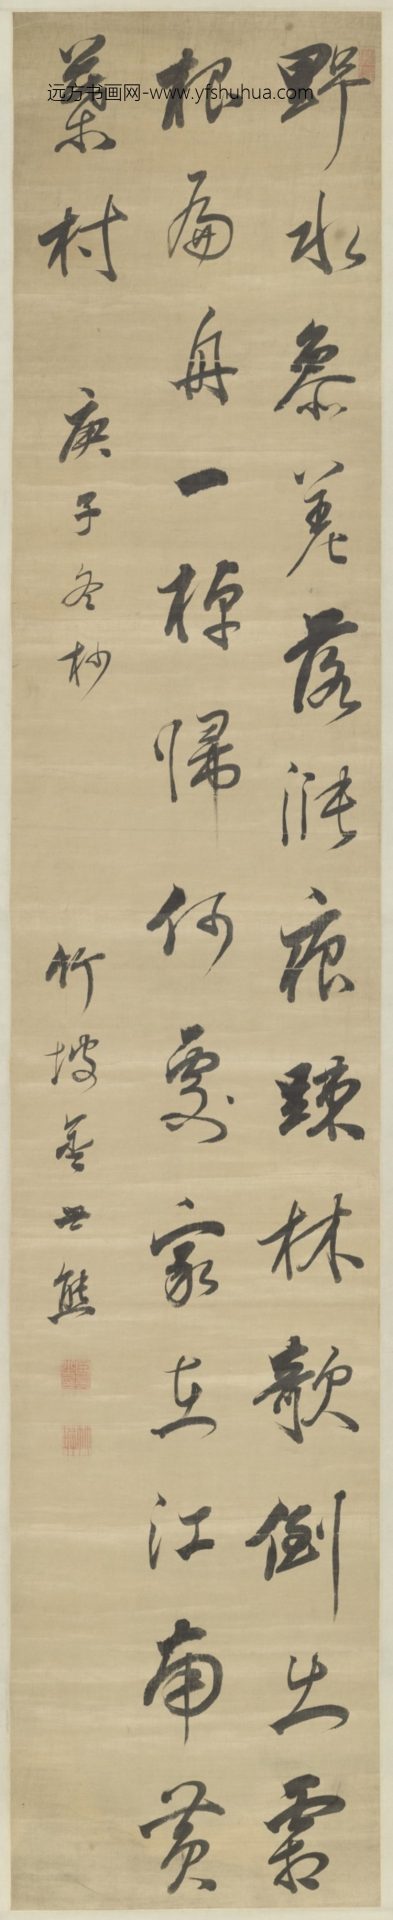 远方书画网-www.yfshuhua.com
野水參差落漲痕疎林欹倒出霜
根扁舟一棹歸何處家在江南黃
葉村 庚子冬杪 竹坡世熊